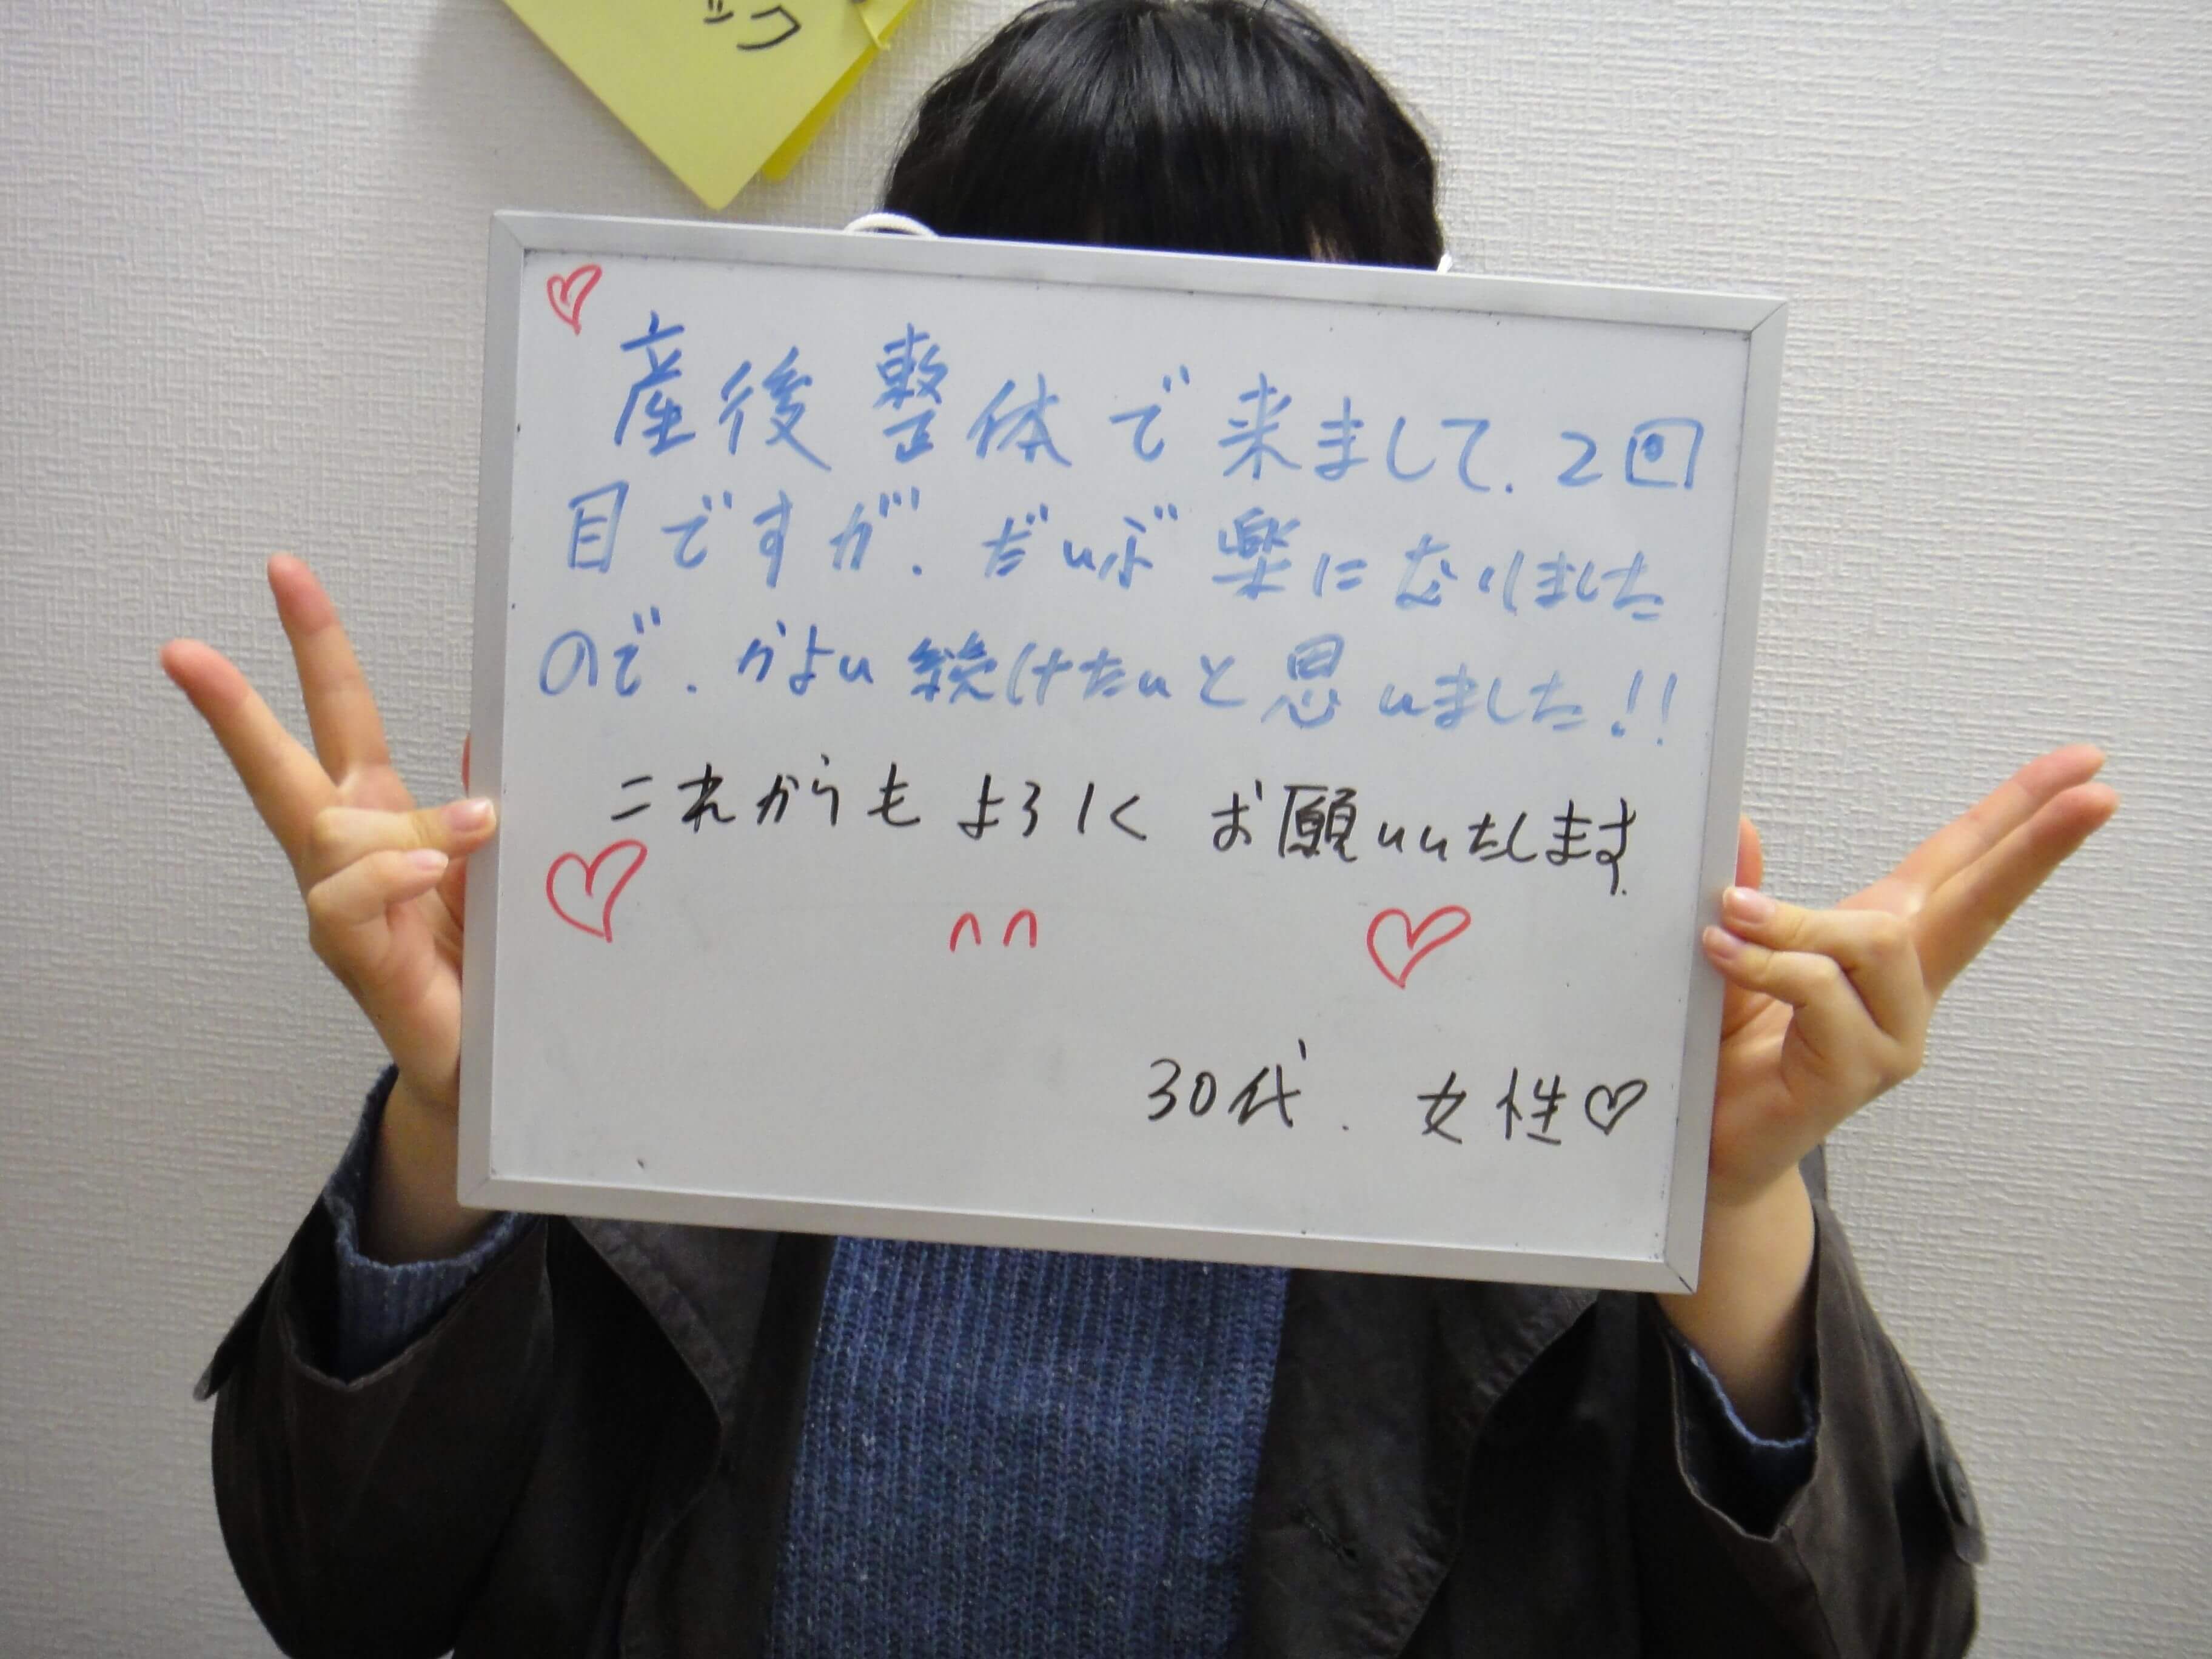 ック
♡
産後整体で来まして、2回
目ですが、だいぶ楽になりました
ので、かよい続けたいと思いました!!
これからもよろしくお願いいたします
♡ ∩∩ ♡
30代、女性♡